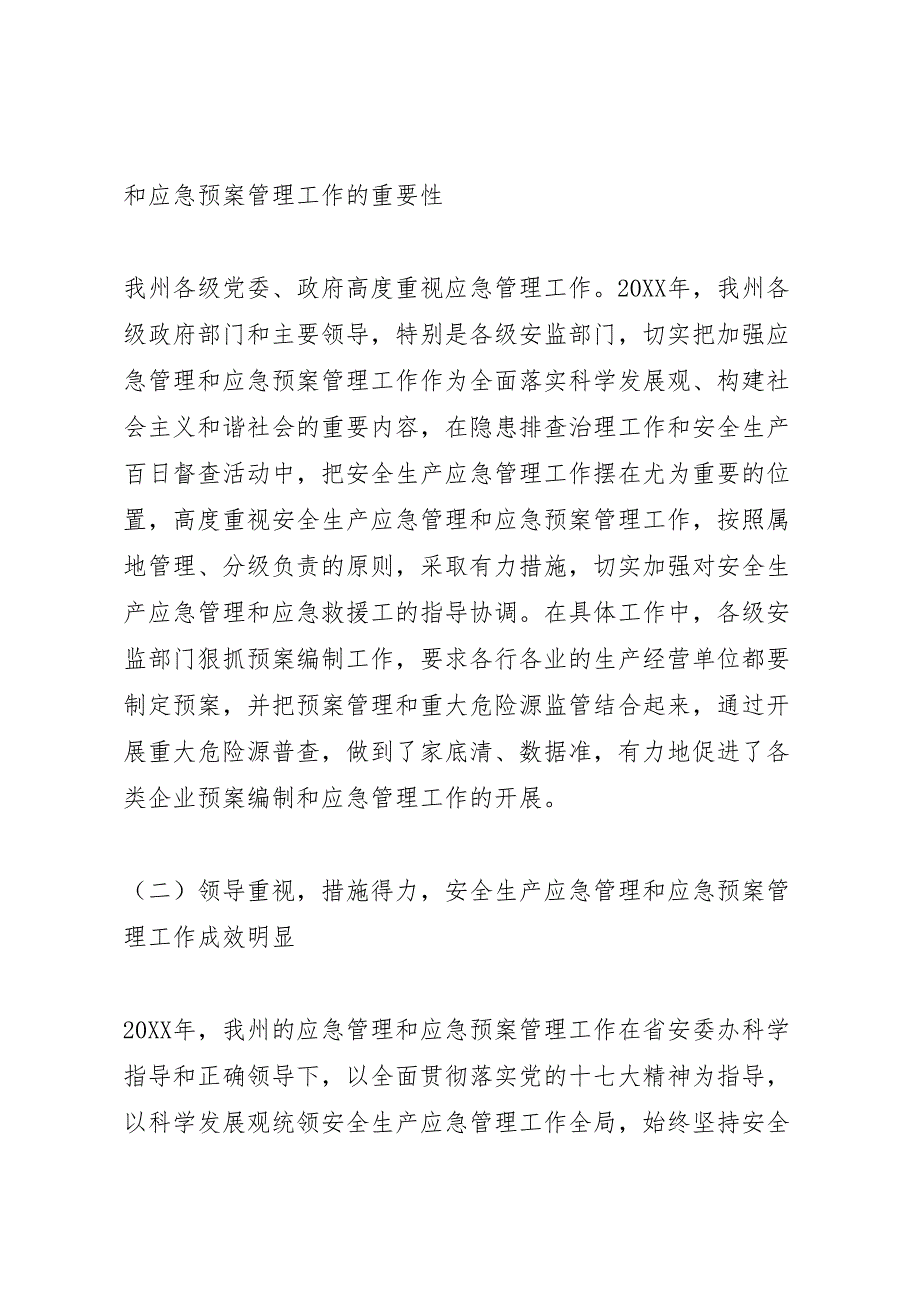 和应急预案管理工作的重要性
我州各级党委、政府高度重视应急管理工作。20XX年，我州各
级政府部门和主要领导，特别是各级安监部门，切实把加强应
急管理和应急预案管理工作作为全面落实科学发展观、构建社
会主义和谐社会的重要内容，在隐患排查治理工作和安全生产
百日督查活动中，把安全生产应急管理工作摆在尤为重要的位
置，高度重视安全生产应急管理和应急预案管理工作，按照属
地管理、分级负责的原则，采取有力措施，切实加强对安全生
产应急管理和应急救援工的指导协调。在具体工作中，各级安
监部门狠抓预案编制工作，要求各行各业的生产经营单位都要
制定预案，并把预案管理和重大危险源监管结合起来，通过开
展重大危险源普查，做到了家底清、数据准，有力地促进了各
类企业预案编制和应急管理工作的开展。
（二）领导重视，措施得力，安全生产应急管理和应急预案管
理工作成效明显
20XX年，我州的应急管理和应急预案管理工作在省安委办科学
指导和正确领导下，以全面贯彻落实党的十七大精神为指导，
以科学发展观统领安全生产应急管理工作全局，始终坚持安全